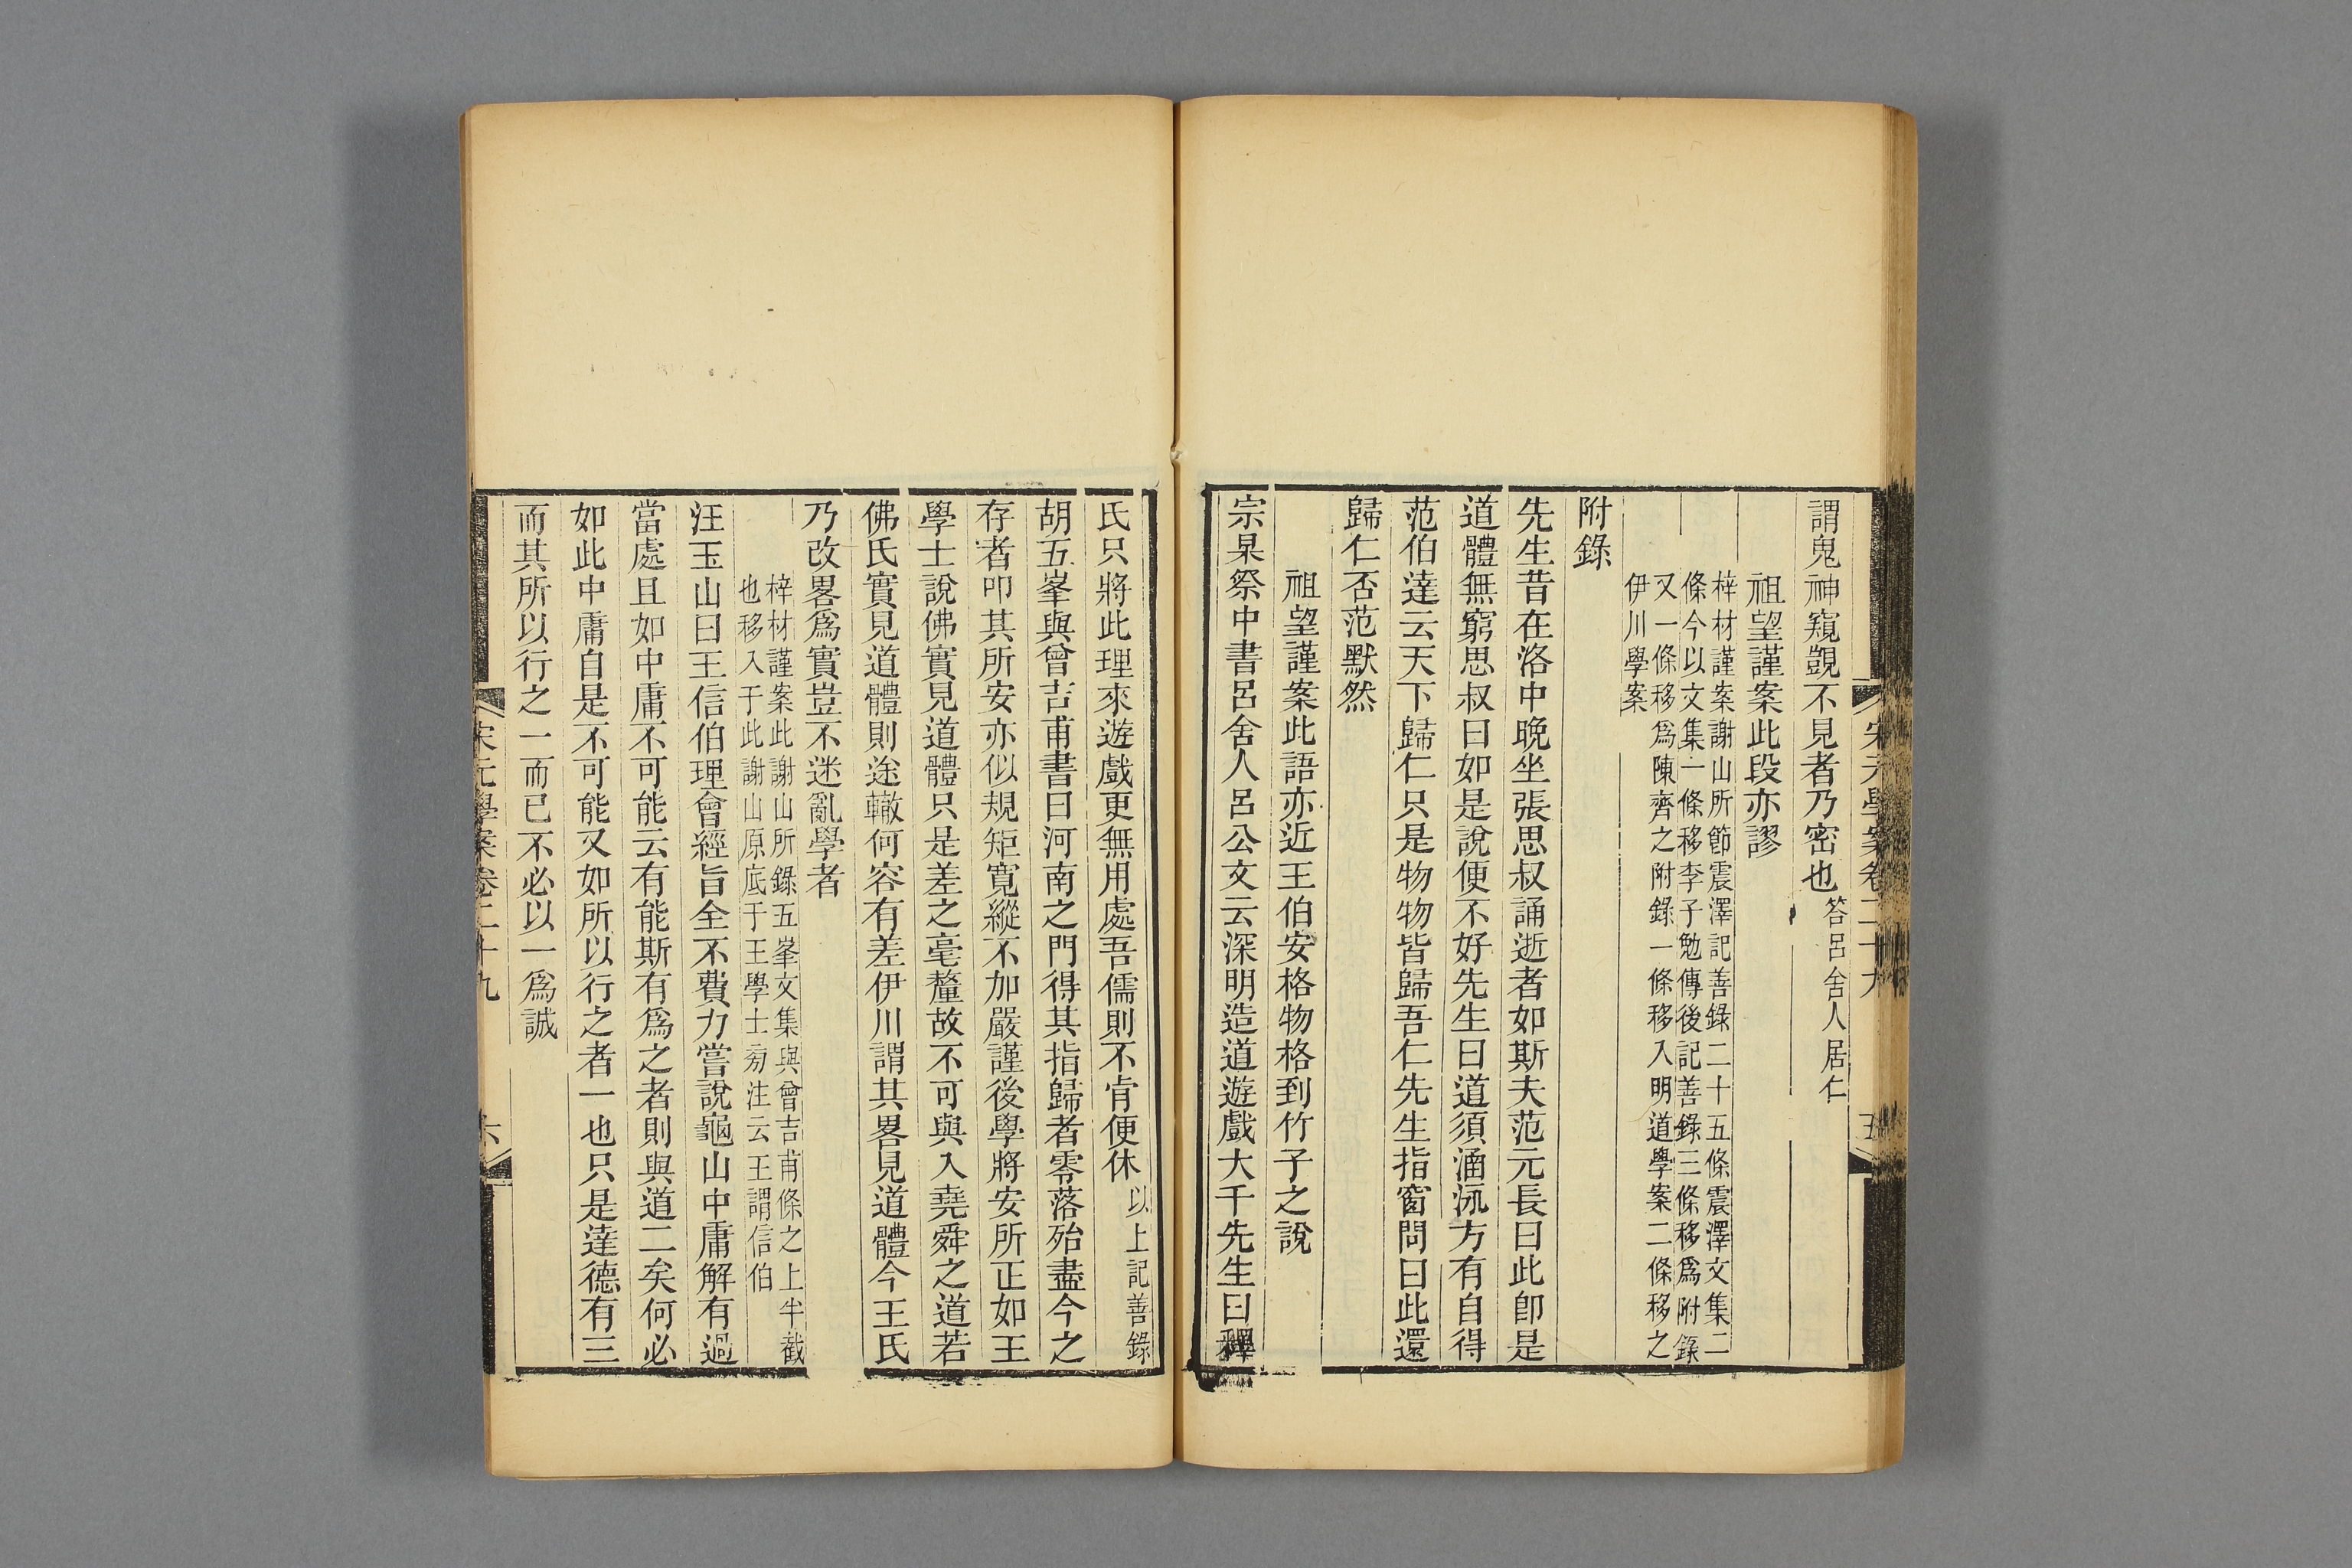 宋元學案卷二十九
五
謂鬼神窺覬不見者乃密也答呂舍人居仁
祖望謹案此段亦謬
梓材謹案謝山所節震澤記善錄二十五條震澤文集二
條今以文集一條移李子勉傳後記善錄三條移爲附錄
又一條移爲陳齊之附錄一條移入明道學案二條移之
伊川學案
附錄
先生昔在洛中晚坐張思叔誦逝者如斯夫范元長曰此卽是
道體無窮思叔曰如是說便不好先生曰道須涵泳方有自得
范伯達云天下歸仁只是物物皆歸吾仁先生指窗問曰此還
歸仁否范默然
祖望謹案此語亦近王伯安格物格到竹子之說
宗杲祭中書呂舍人呂公文云深明造道遊戲大千先生曰釋
氏只將此理來遊戲更無用處吾儒則不肯便休以上記善錄
胡五峯與曾吉甫書曰河南之門得其指歸者零落殆盡今之
存者叩其所安亦似規矩寬縱不加嚴謹後學將安所正如王
學士說佛實見道體只是差之毫釐故不可與入堯舜之道若
佛氏實見道體則途轍何容有差伊川謂其畧見道體今王氏
乃改畧爲實豈不迷亂學者
梓材謹案此謝山所錄五峯文集與曾吉甫條之上半截
也移入于此謝山原底于王學士旁注云王謂信伯
汪玉山曰王信伯理會經旨全不費力嘗說龜山中庸解有過
當處且如中庸不可能云有能斯有爲之者則與道二矣何必
如此中庸自是不可能又如所以行之者一也只是達德有三
而其所以行之一而已不必以一爲誠
宋元學案卷二十九
六